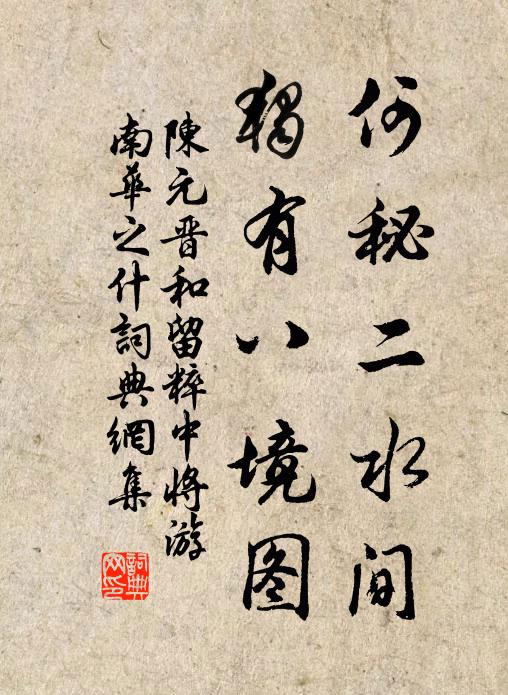 何秘二水间
独有八境图
陳元晋和留粹中将游
南華之什詞典網集
詞典网印